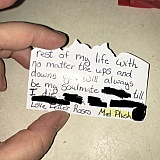 rest of my life with
no matter the ups and
downs you will always
be my Soulmate till
I die
Love Letter Roses Mel Plush